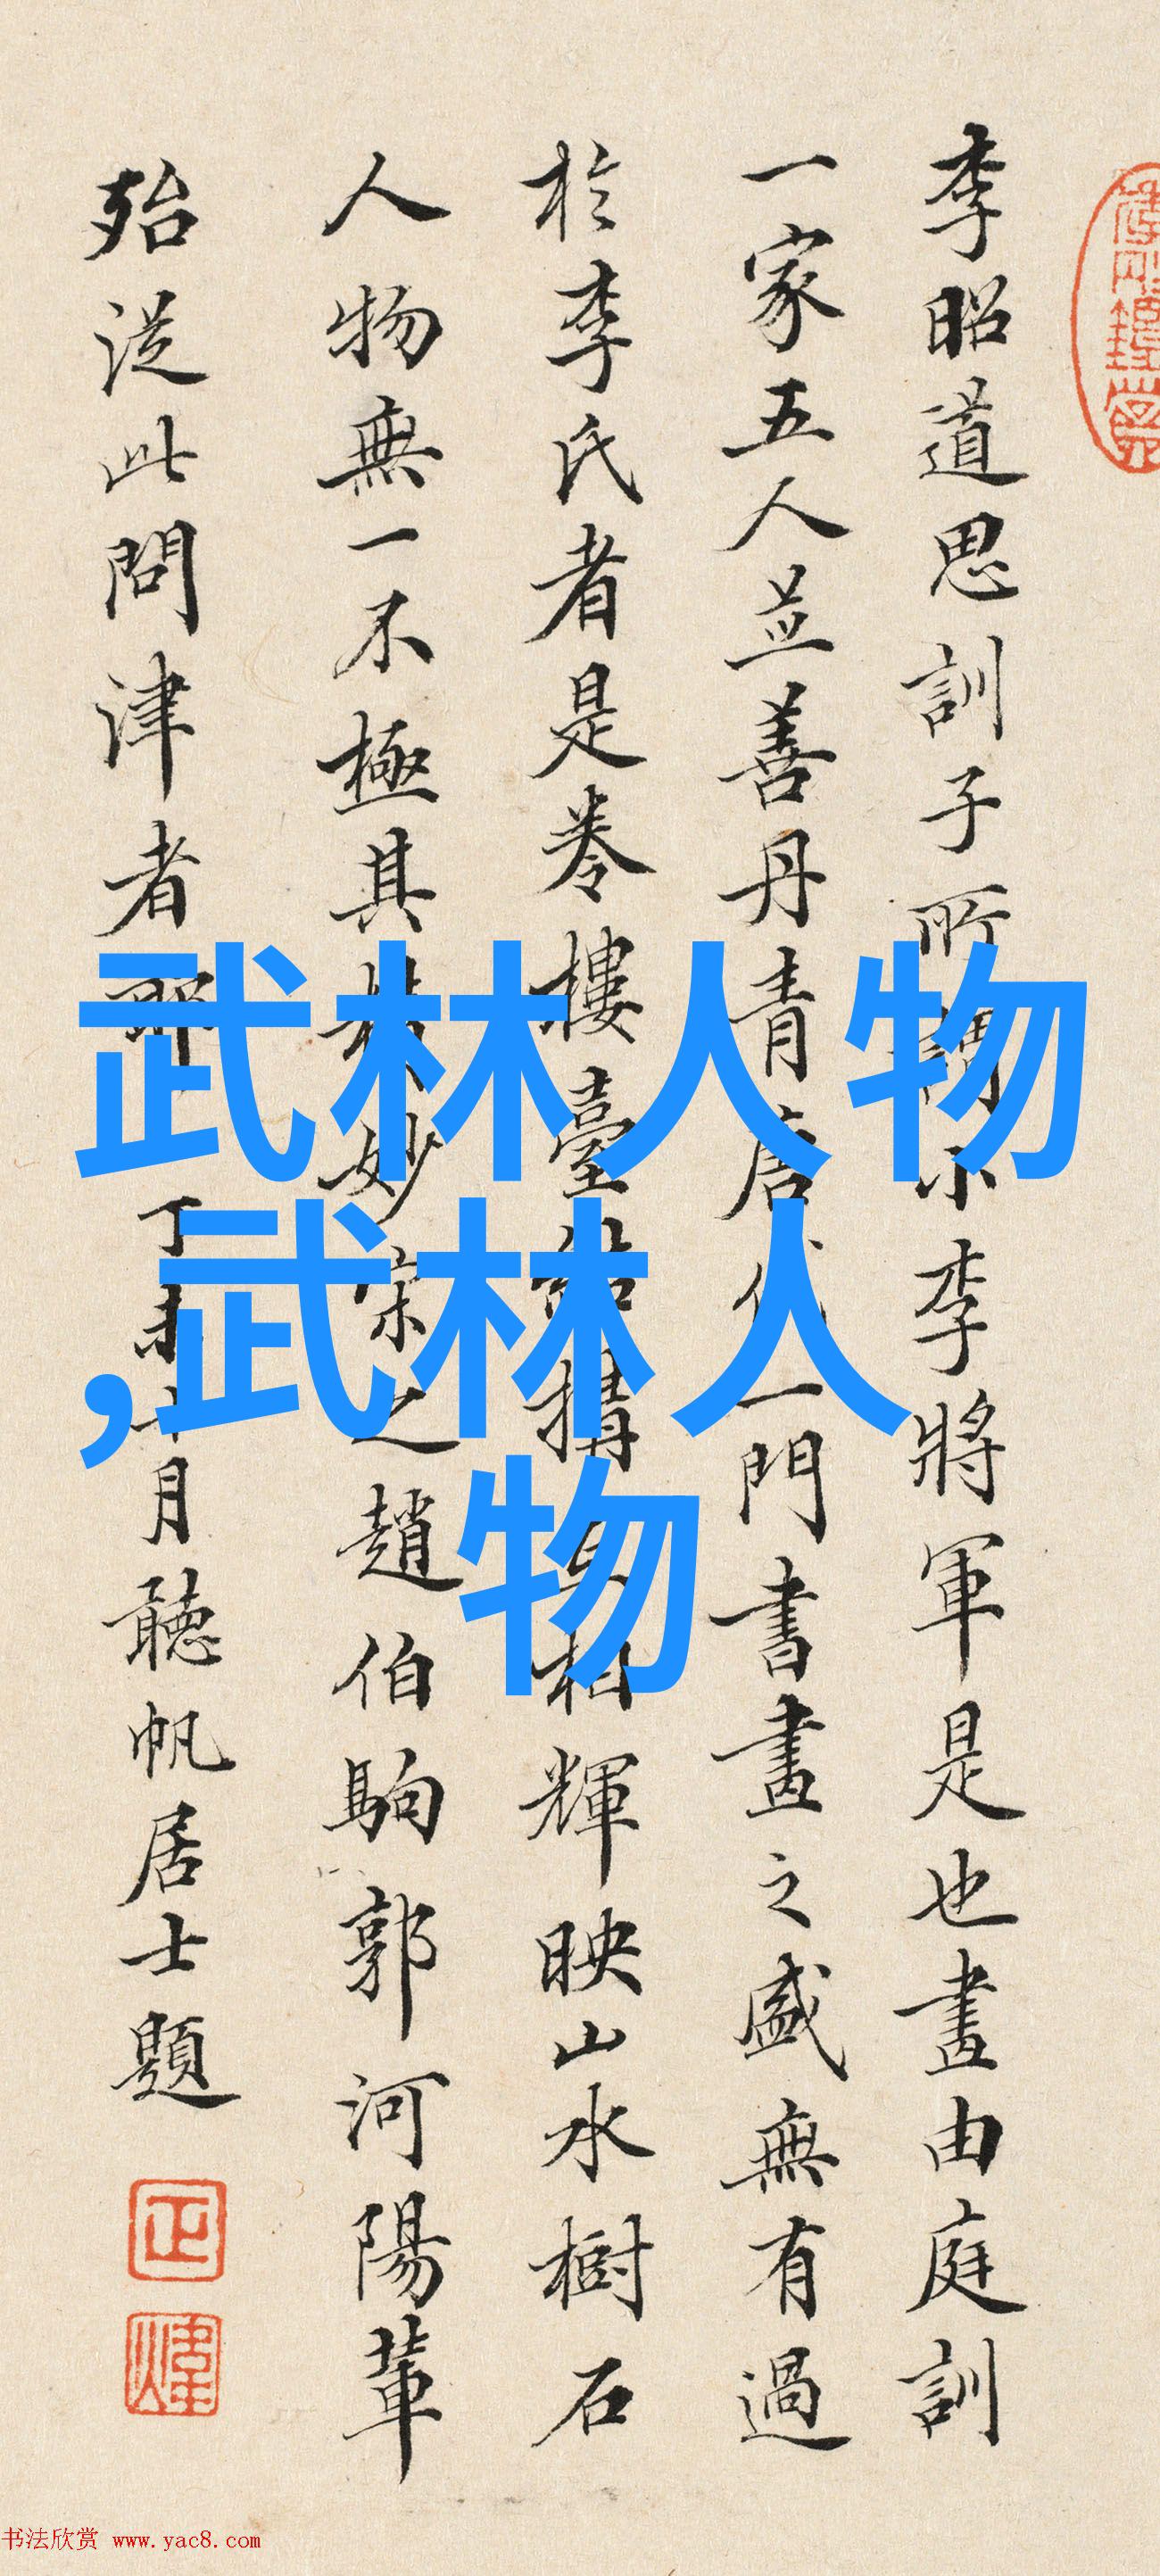 李昭道思訓子所謂小李將軍是也畫由庭訓
一家五人並善丹青唐代一門書畫之盛無有過
於李氏者是卷樓臺結構與相輝映山水樹石
人物無一不極其精妙宋之趙伯駒郭河陽輩
殆從此問津者耶丁未十月聽帆居士題
武林人物
,武林人
物
书法欣赏 www.yac8.com